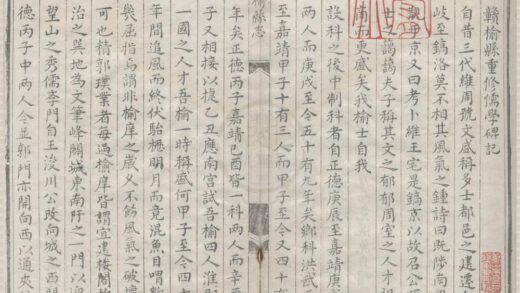 贛榆縣重修儒學碑記
自昔三代維周號文盛稱多士都邑之遷遷
岐至鎬洛莫不相其風氣之鍾詩曰既陟南
觀于京又曰考卜維王宅是鎬京以故召公
士之藹藹夫子稱其文之郁郁周室之人才
滿而更盛矣我榆士自我
設科之後中制科者自正德庚辰至嘉靖庚
兩人而庚戌至今五十有九年矣鄉科洪武
至嘉靖甲子十有三人而甲子至今又四十
榆縣志
年矣正德丙子嘉靖己酉皆一科兩人而辛
子又相接以捷乙丑應南宮試吾榆四人淮
一國之人才吾榆一時稱盛何甲子至今四
年間追風而終伏駘櫪明月而竟混魚目喟
幾屈指焉謂非榆庠之歲久不飭風氣之破
可也精郭璞業者每過榆庠皆謂宜建樓閣
治之巽地為文筆峰闢城東南阡之一門以
望山之秀儒李門自王浚川公改向城之西
德丙子中兩人今並郭門亦開向西以通夾